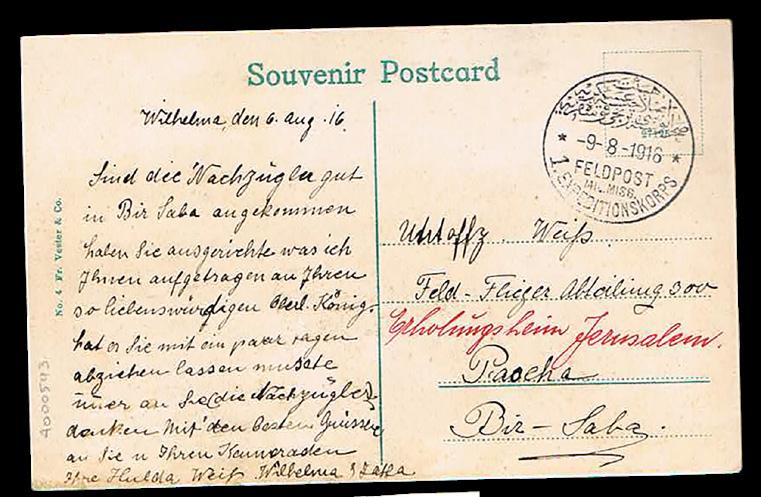 Souvenir Postcard
Wilhelma, den 6. Aug. 16.
Sind die Nachzügler gut
in Bir Saba angekommen
haben Sie ausgerichte was ich
Ihnen aufgetragen an Ihren
so liebenswürdigen Oberl. König.
hat er Sie mit ein paar
abziehen lassen musste
an Sie (die Nachzügler)
denken Mit den besten Grüssen
an Sie u Ihren Kameraden
Ihre Hulda Weiß Wilhelma
No. 4 Fr. Vester & Co.
4000543
-9-8-1916
FELDPOST
MIL. MISS.
1. EXPEDITIONSKORPS
Untoffz Weiß
Feld-Flieger Abteilung 300
Erholungsheim Jerusalem.
Pascha
Bir-Saba.